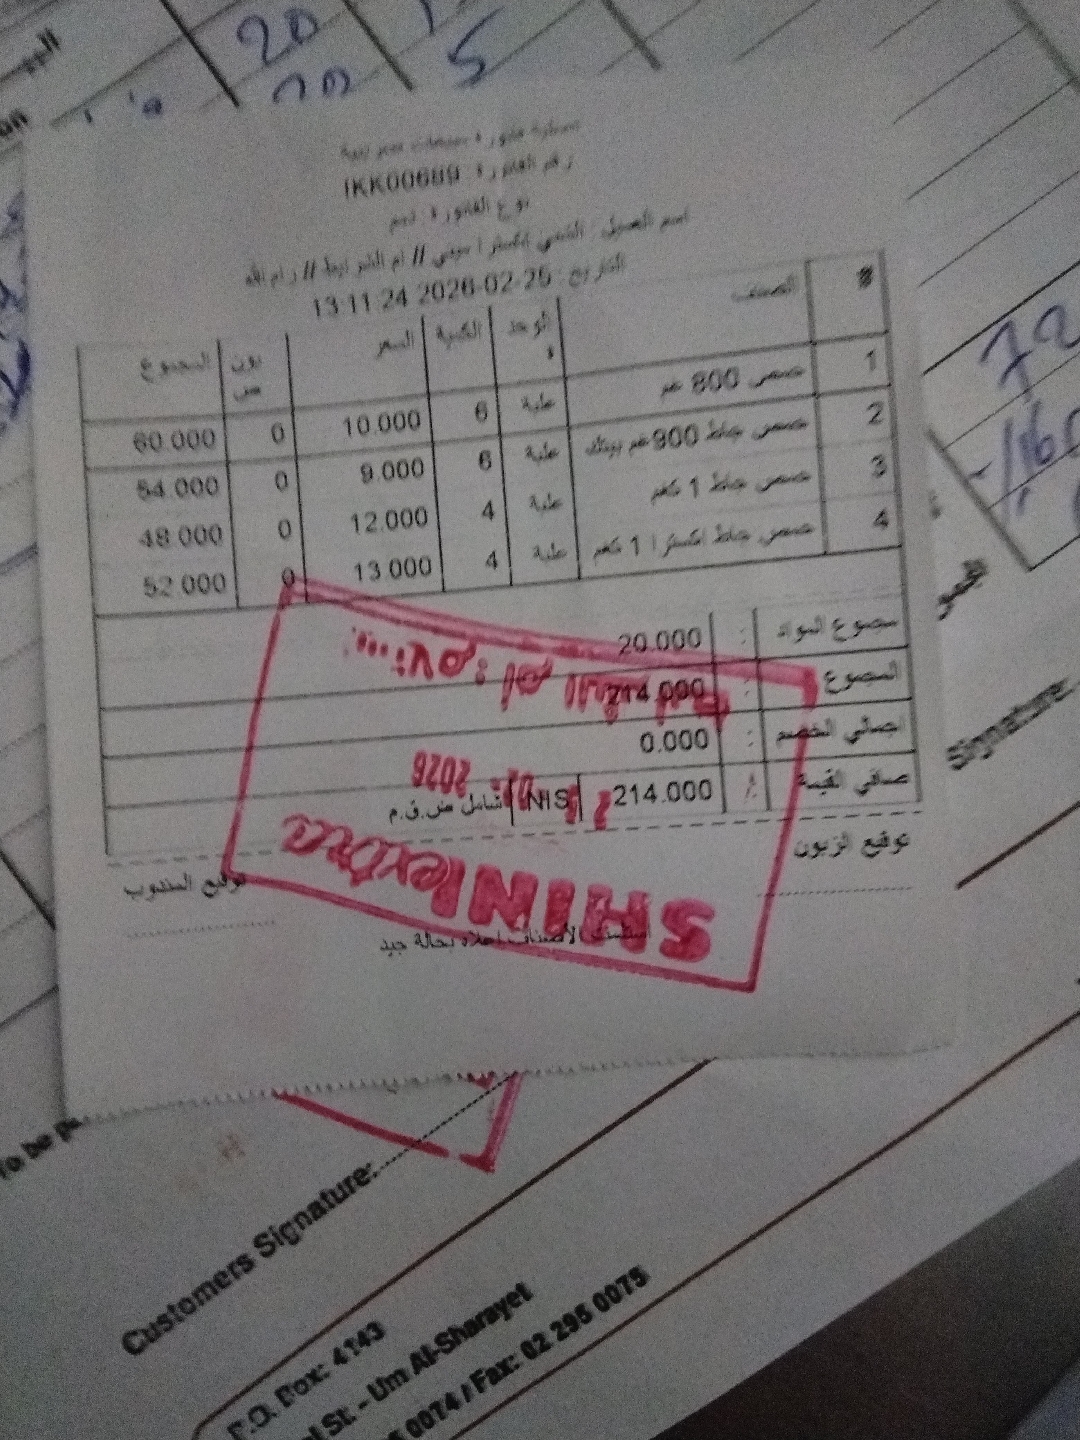 20
5
رقم الفاتورة: IKK00689
نوع الفاتورة: ذمم
اسم العميل: الشني إكسترا سيتي // ام الشرايط // رام الله
التاريخ: 2026-02-25 13:11:24
# الصنف الوحدة الكمية السعر بونص المجموع
1 حمص 800 غم علبة 6 10.000 0 60.000
2 حمص جاط 900 غم علبة 6 9.000 0 54.000
3 حمص جاط 1 كغم علبة 4 12.000 0 48.000
4 حمص جاط اكسترا 1 كغم علبة 4 13.000 0 52.000
مجموع المواد : 20.000
المجموع : 214.000
اجمالي الخصم : 0.000
صافي القيمة : 214.000 NIS شامل ض.ق.م
توقيع الزبون
توقيع المندوب
استلمت الأصناف اعلاه بحالة جيد
SHINI extra
2026
72
Signature
To be
Customers Signature:
P.O. Box: 4143
St. - Um Al-Sharayet
0074 / Fax: 02 295 0075